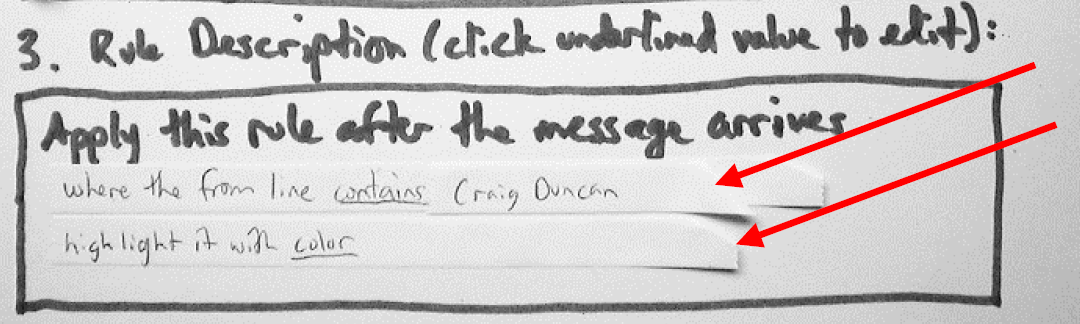 3. Rule Description (click underlined value to edit):
Apply this rule after the message arrives
where the from line contains Craig Duncan
highlight it with color